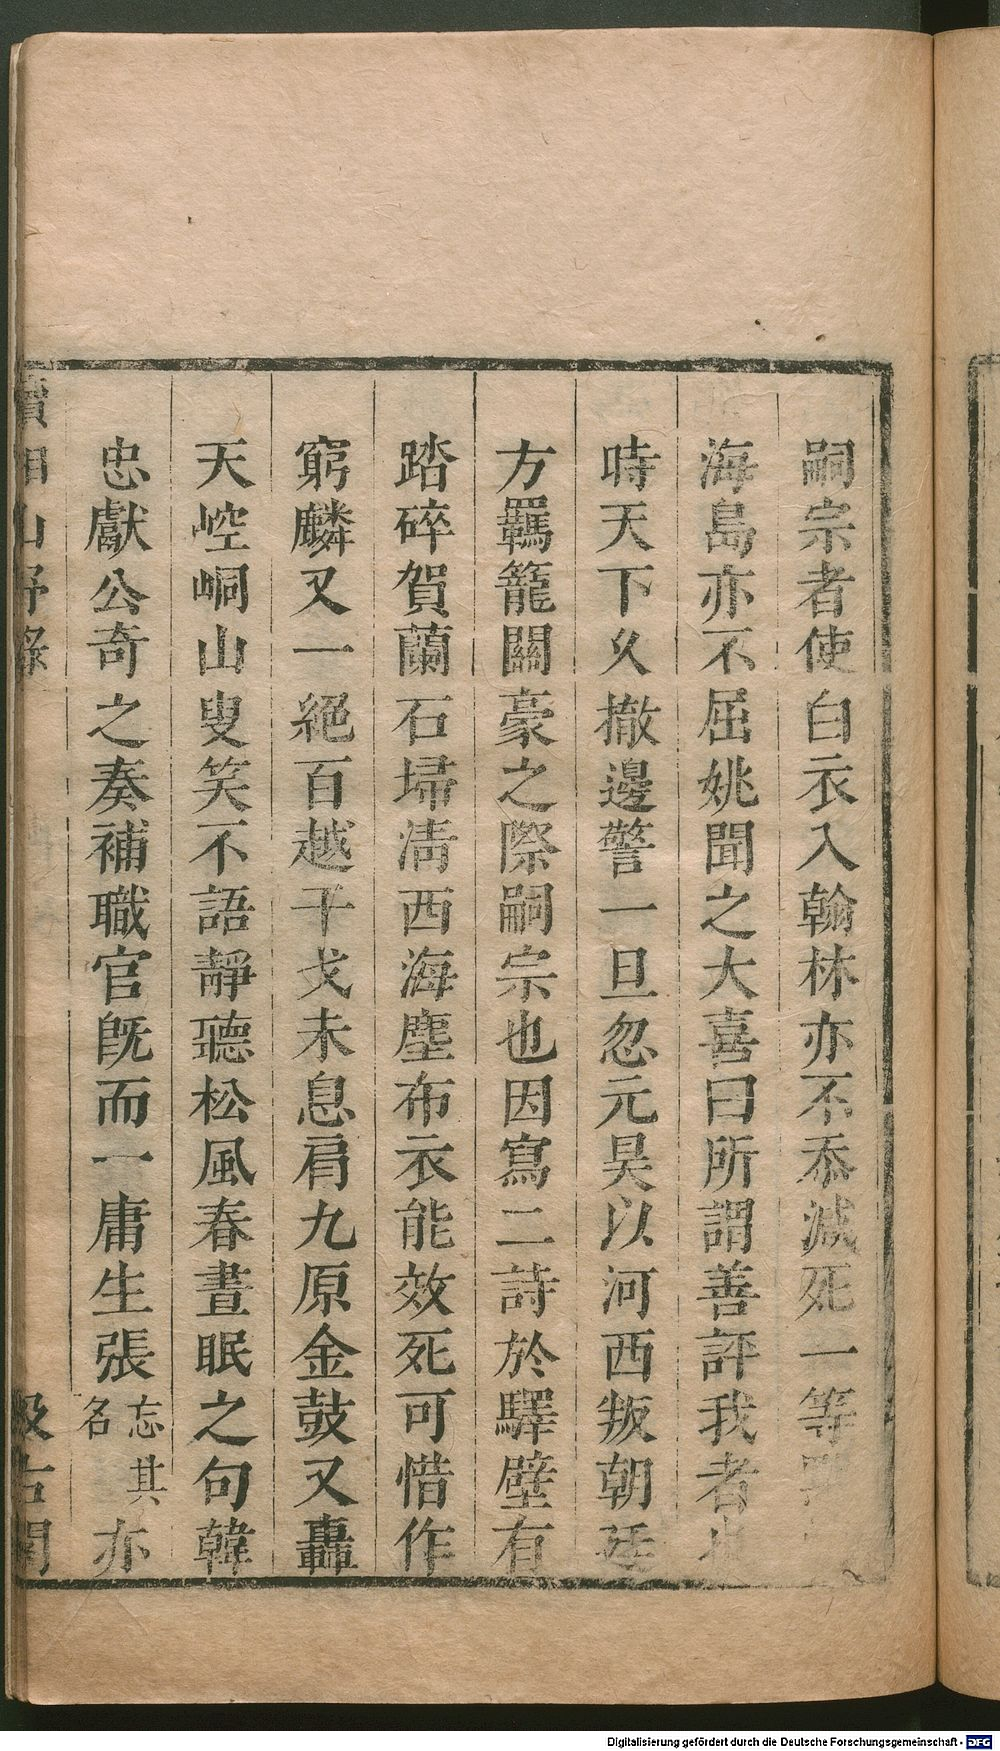 嗣宗者使白衣入翰林亦不忝減死一等
海島亦不屈姚聞之大喜曰所謂善評我者
時天下久撤邊警一旦忽元昊以河西叛朝廷
方羈籠關豪之際嗣宗也因寫二詩於驛壁有
踏碎賀蘭石埽清西海塵布衣能效死可惜作
窮麟又一絕百越干戈未息肩九原金鼓又轟
天崆峒山叟笑不語靜聽松風春晝眠之句韓
忠獻公奇之奏補職官旣而一庸生張忘其名亦
山野錄
Digitalisierung gefördert durch die Deutsche Forschungsgemeinschaft - DFG